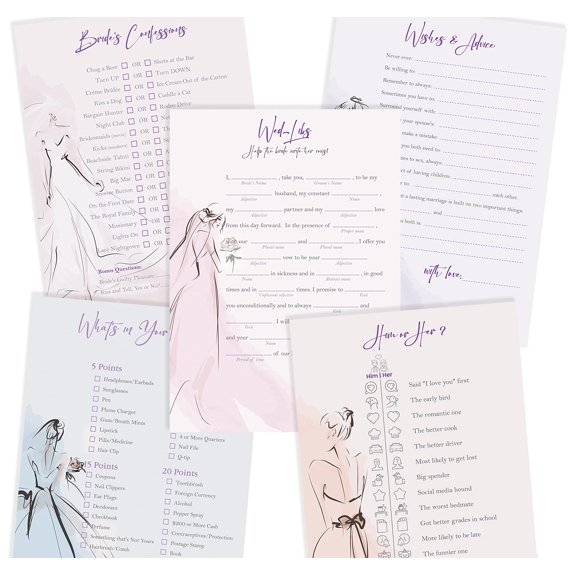 Bride's Confessions
Chug a Beer OR Shots at the Bar
Turn UP OR Turn DOWN
Crème Brûlée OR Ice Cream Out of the Carton
Kiss a Dog OR Cuddle a Cat
Bargain Hunter OR Rodeo Drive
Night Club OR
Bridesmaids (movie) OR
Kicks (sneakers) OR
Beachside Tahiti OR
String Bikini OR
Big Mac OR
Snooze Button OR
On the First Date OR
The Royal Family OR
Missionary OR
Lights On OR
Lace Nightgown OR
Bonus Questions:
Bride's Guilty Pleasure
Kiss and Tell, Yes or No?
Wishes & Advice
Never ever:
Be willing to:
Remember to always:
Sometimes you have to:
Surround yourself with:
your spouse's
make a mistake:
you both need to:
to sex, always
of having children,
each other.
t a lasting marriage is built on two important things:
and
both is
with love,
Wed-Libs
Help the bride with her vows!
I, , take you, , to be my
Bride's Name Groom's Name
husband, my constant ,
Adjective Noun
my partner and my love
Adjective Adjective
from this day forward. In the presence of ,
Proper noun
our and , I offer you
Plural noun Plural noun
vow to be your
Adjective
in sickness and in , in good
Noun Abstract noun
times and in times. I promise to
Unpleasant adjective Verb
you unconditionally and to always and
Verb
and your
Noun
of our
Period of time
What's in Your
5 Points
Headphones/Earbuds
Sunglasses
Pen
Phone Charger
Gum/Breath Mints
Lipstick
Pills/Medicine
Hair Clip
4 or More Quarters
Nail File
Q-tip
15 Points
Coupons
Nail Clippers
Ear Plugs
Deodorant
Checkbook
Perfume
Something that's Not Yours
Hairbrush/Comb
20 Points
Toothbrush
Foreign Currency
Alcohol
Pepper Spray
$200 or More Cash
Contraceptives/Protection
Postage Stamp
Book
Him or Her?
Him Her
Said "I love you" first
The early bird
The romantic one
The better cook
The better driver
Most likely to get lost
Big spender
Social media hound
The worst bedmate
Got better grades in school
More likely to be late
The funnier one